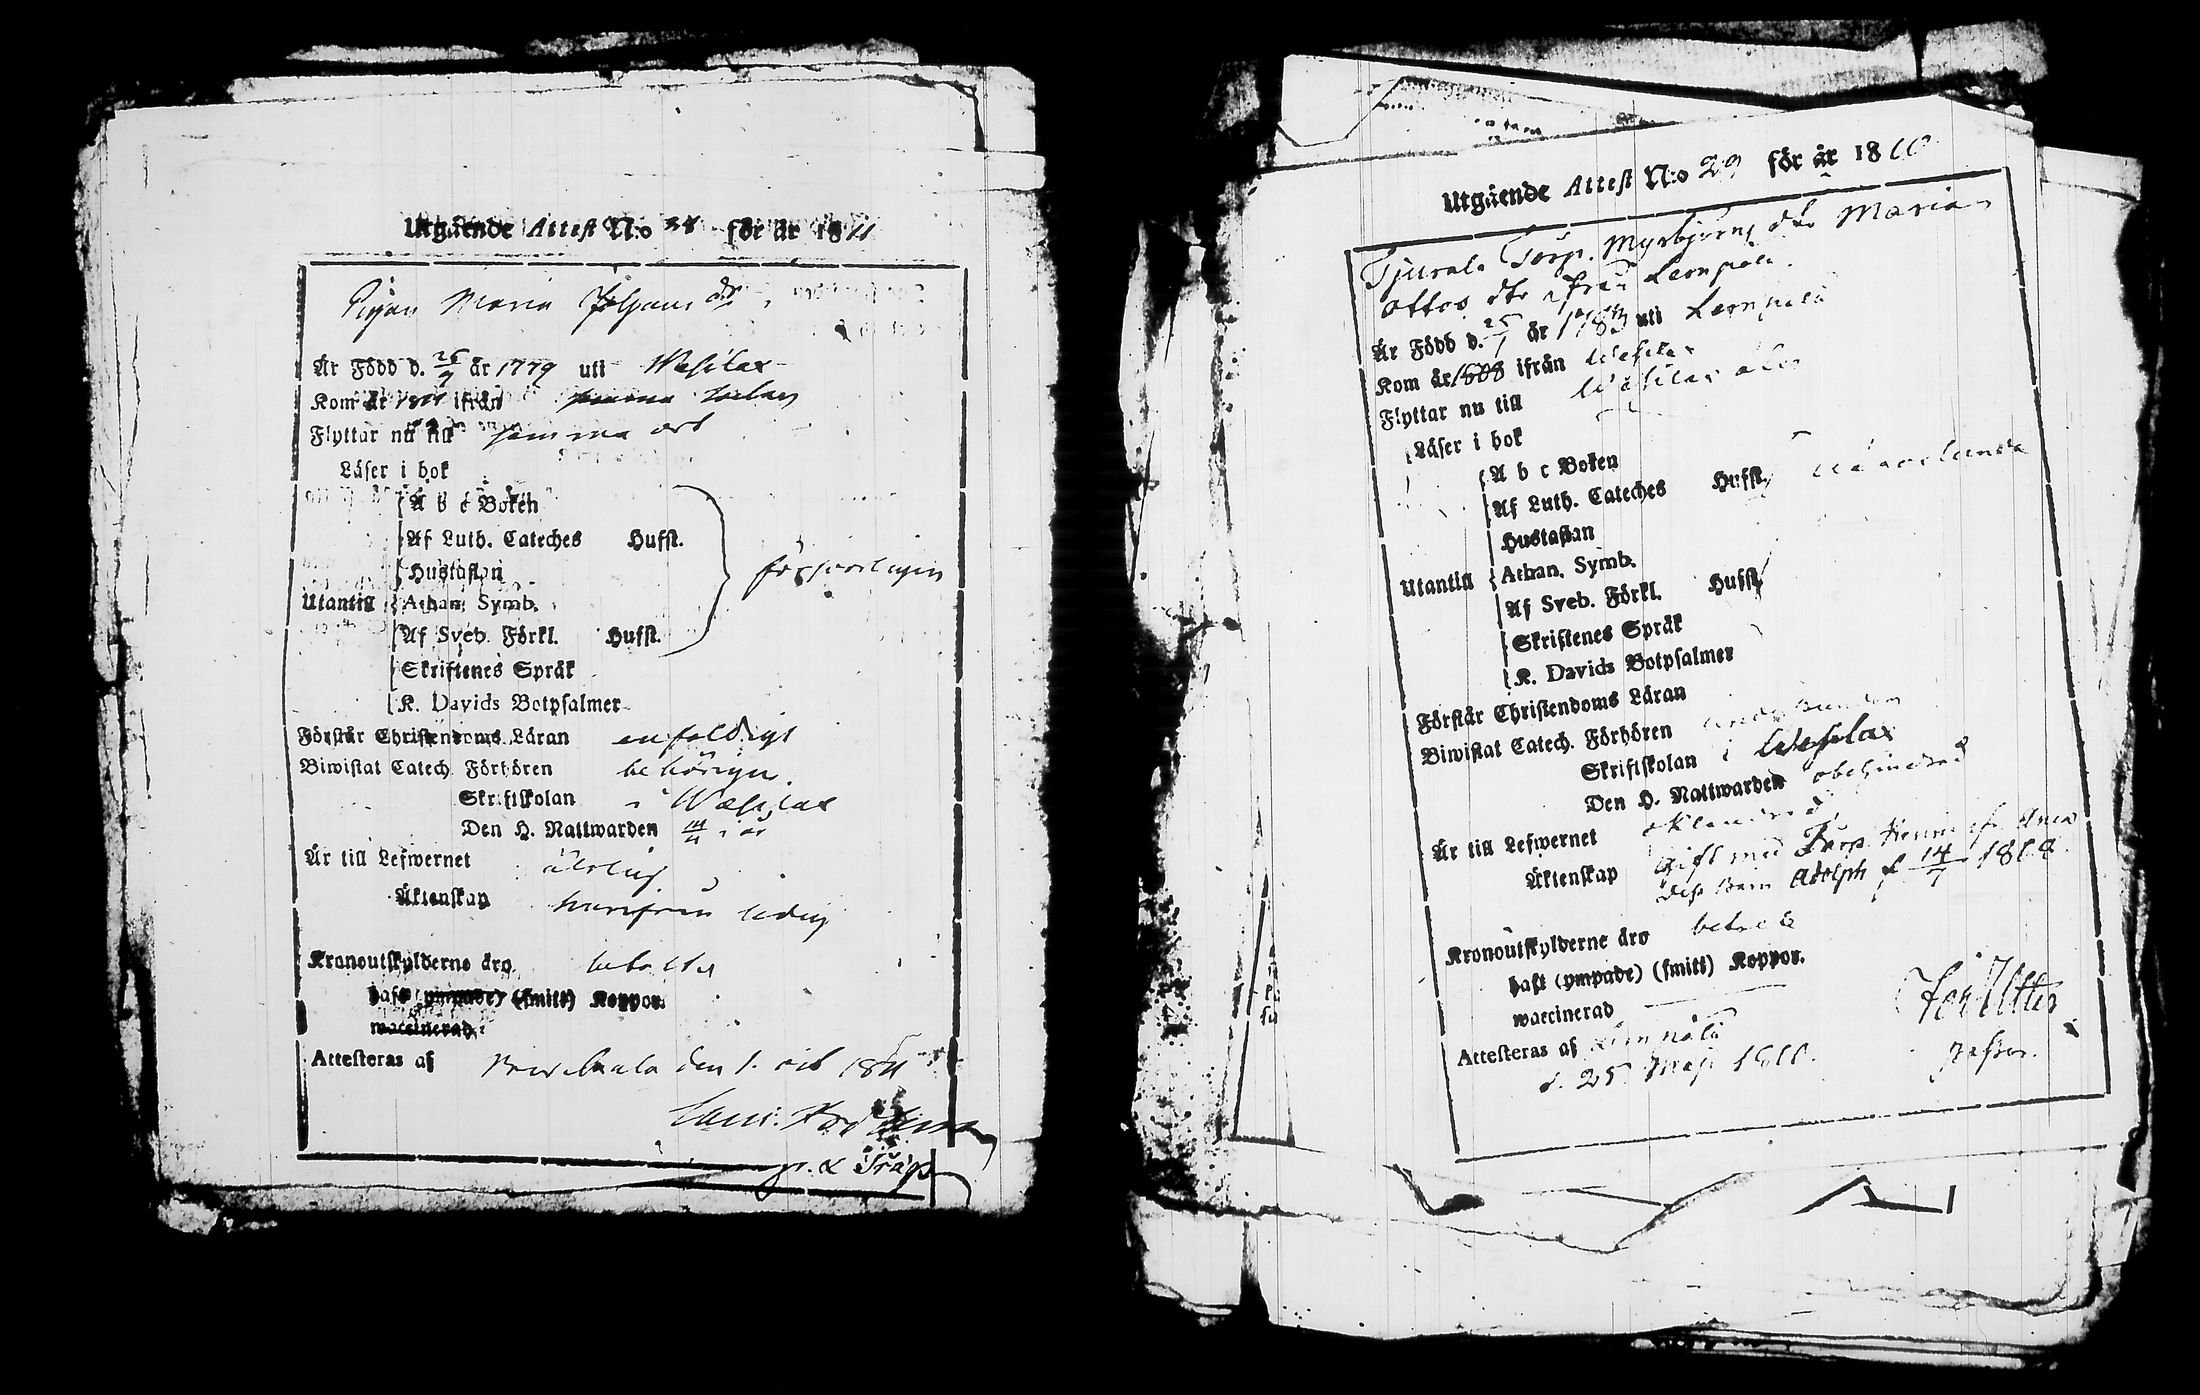 Utgående Attest N:o 28 för år 1811
Pigan Maria Johans dr
Är Född d. 26/9 år 1779 uti Wesilax
Kom år 1811 ifrån
Flyttar nu till samma ort
Läser i bok
A b c Boken
Af Luth. Cateches Hufst.
Hustaflan
Utantill Athan. Symb.
Af Sveb. Förkl. Hufst.
Skriftenes Språk
K. Davids Botpsalmer
försvarligen
Förstår Christendoms Läran enfaldigt
Biwistat Catech. Förhören behörigen
Skriftskolan i Wesilax
Den H. Nattwarden i år
Är till Lefwernet ärlig
Äktenskap härifrån ledig
Kronoutskylderne äro betalta
haft (ympade) (smitt) Koppor.
waccinerad
Attesteras af den 1. oct 1811
Utgående Attest N:o 29 för år 1810
Tjurala Torp. Myrbjörns dtr Maria
Ottos dtr ifrån Lempälä
Är Född d. 25/1 år 1783 uti Lempälä
Kom år 1808 ifrån Wesilax
Flyttar nu till Wesilax åter
Läser i bok
A b c Boken
Af Luth. Cateches Hufst.
Hustaflan
Utantill Athan. Symb.
Af Sveb. Förkl. Hufst.
Skriftenes Språk
K. Davids Botpsalmer
Förstår Christendoms Läran
Biwistat Catech. Förhören
Skriftskolan i Wesilax
Den H. Nattwarden obehindrad
Är till Lefwernet oklandrad
Äktenskap Gift med Torp.
dess Barn Adolph f 14/7 1808.
Kronoutskylderne äro betalta
haft (ympade) (smitt) Koppor.
waccinerad
Attesteras af Lempälä
d. 25 Maji 1810.
Joh Utter
Pastor.